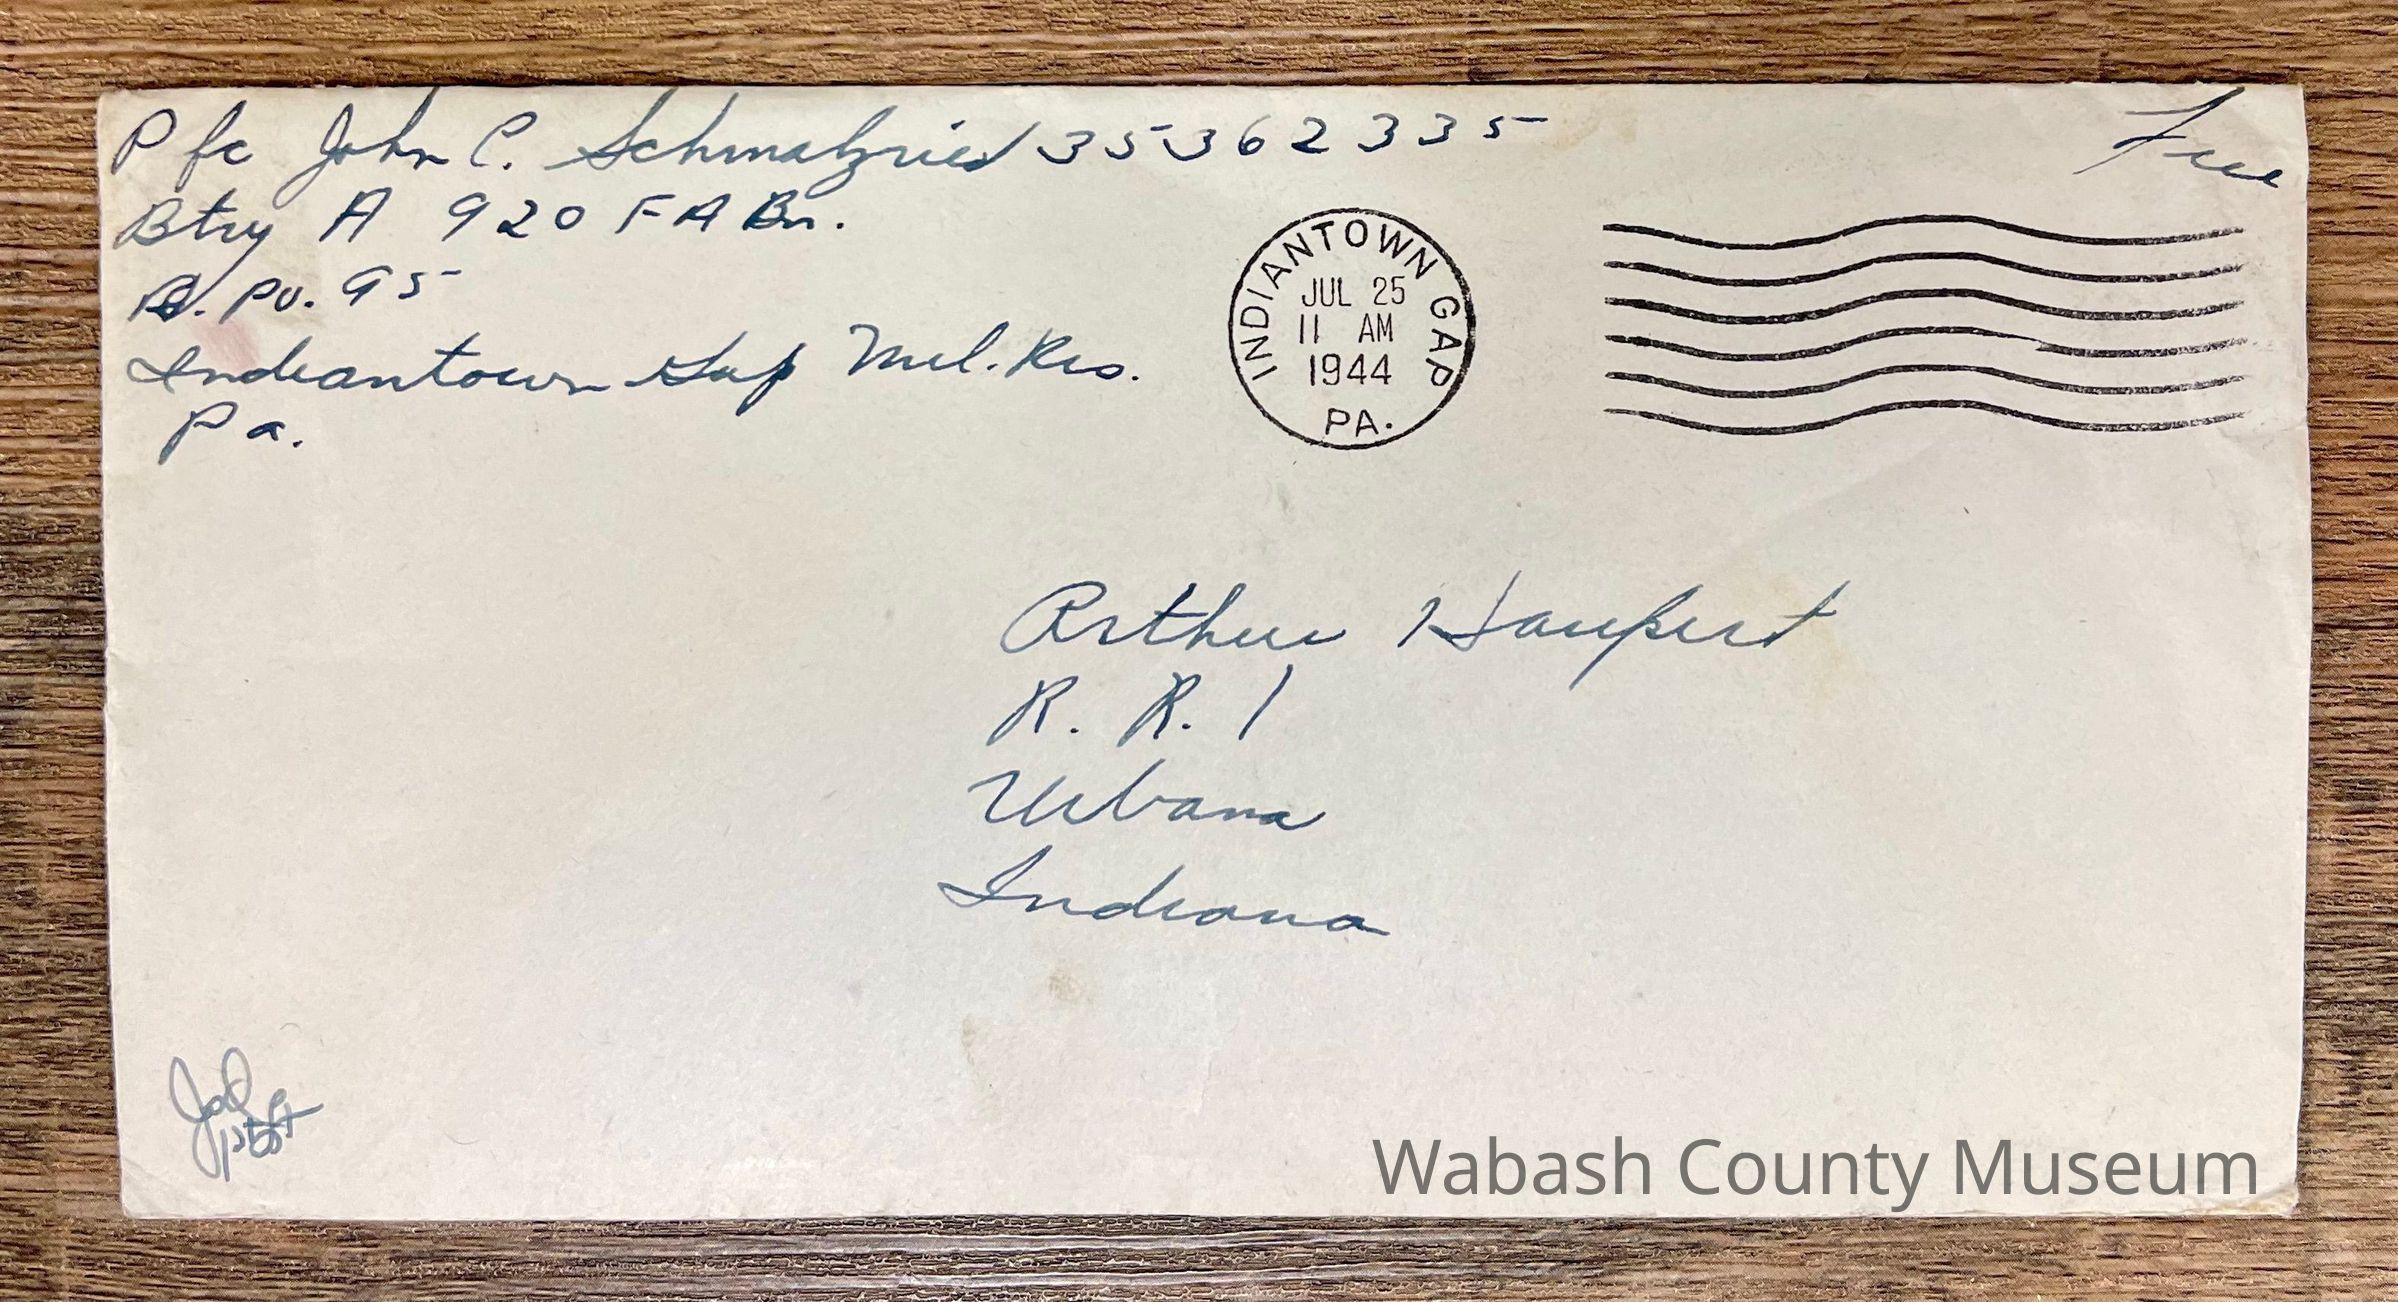 Pfc John C. Schmalzried 35362335
Free
Btry A 920 FA Bn.
A. PO. 95
Indiantown Gap Mil. Res.
Pa.
INDIANTOWN GAP
JUL 25
11 AM
1944
PA.
Arthur Haupert
R. R. 1
Urbana
Indiana
Wabash County Museum